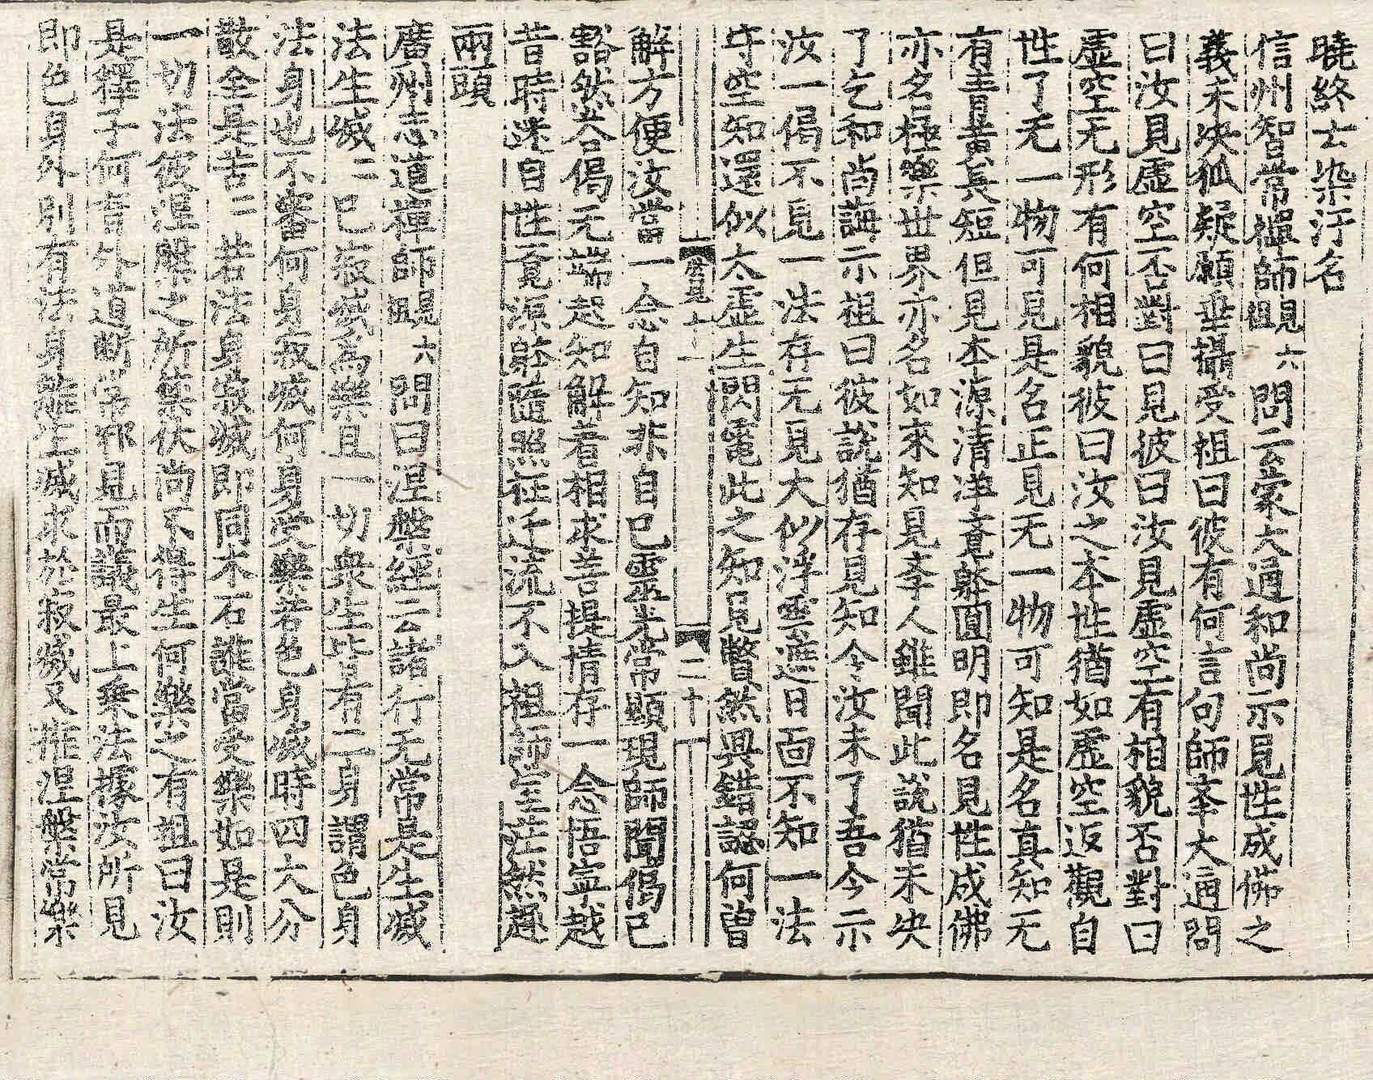 曉終亡染汙名
信州智常禪師見六祖問云蒙大通和尚示見性成佛之
義未决狐疑願垂攝受祖曰彼有何言句師李大通問
曰汝見虛空否對曰見彼曰汝見虛空有相貌否對曰
虛空无形有何相貌彼曰汝之本性猶如虛空返觀自
性了无一物可見是名正見无一物可知是名真知无
有青黃長短但見本源清淨覺躰圓明即名見性成佛
亦名極樂世界亦名如來知見李人雖聞此說猶未决
了乞和尚誨示祖曰彼說猶存見知令汝未了吾今示
汝一偈不見一法存无見大似浮雲遮日面不知一法
守空知還似太虛生閃電此之知見瞥然興錯認何曾
二十
解方便汝當一念自知非自己靈光常顯現師聞偈已
豁然答偈无端起知解着相求菩提情存一念悟寧越
昔時迷自性覺源躰隨照枉迁流不入祖師室茫然趣
兩頭
廣州志道禪師覲六祖問曰涅槃經云諸行无常是生滅
法生滅二已寂滅爲樂且一切衆生皆有二身謂色身
法身也不審何身寂滅何身受樂若色身滅時四大分
散全是苦二若法身寂滅即同木石誰當受樂如是則
一切法彼涅槃之所禁伏尚不得生何樂之有祖曰汝
是釋子何習外道斷常邪見而議最上乘法據汝所見
即色身外別有法身離生滅求於寂滅又推涅槃常樂